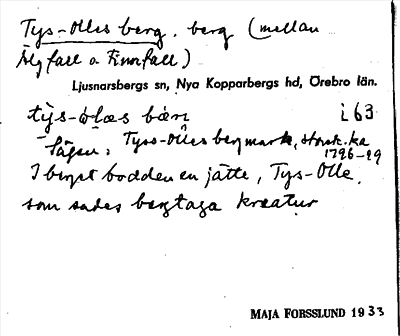 Tys-Olles berg. berg (mellan
Älgfall o Finnfall)
Ljusnarsbergs sn, Nya Kopparbergs hd, Örebro län.
tỳs-òlæs bær̨ i 63
Sägen: Tyss-Olles bergmark, storsk.ka
1796-99
I berget bodde en jätte, Tys-Olle,
som sades bergtaga kreatur
MAJA FORSSLUND 1933